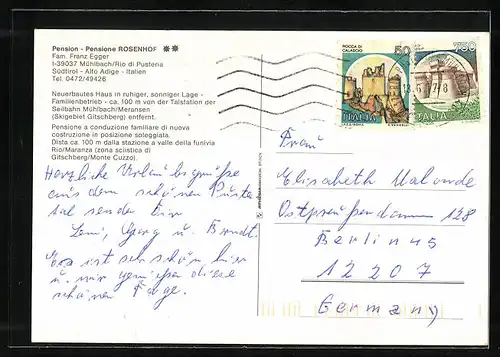 Pension - Pensione ROSENHOF ✱✱
Fam. Franz Egger
I-39037 Mühlbach/Rio di Pusteria
Südtirol - Alto Adige - Italien
Tel. 0472/49426
Neuerbautes Haus in ruhiger, sonniger Lage -
Familienbetrieb - ca. 100 m von der Talstation der
Seilbahn Mühlbach/Meransen
(Skigebiet Gitschberg) entfernt.
Pensione a conduzione familiare di nuova
costruzione in posizione soleggiata.
Dista ca. 100 m dalla stazione a valle della funivia
Rio/Maranza (zona sciistica di
Gitschberg/Monte Cuzzo).
Herzliche Urlaubsgrüße
aus dem schönen Puster
tal senden Dir
Georg u.
Es ist sehr schön hier
u. wir genießen diese
schönen Tage.
ROCCA DI
CALASCIO
50
ITALIA
750
ITALIA
Frau
Elisabeth
Ostpreußendamm 128
Berlin 45
12207
Germany